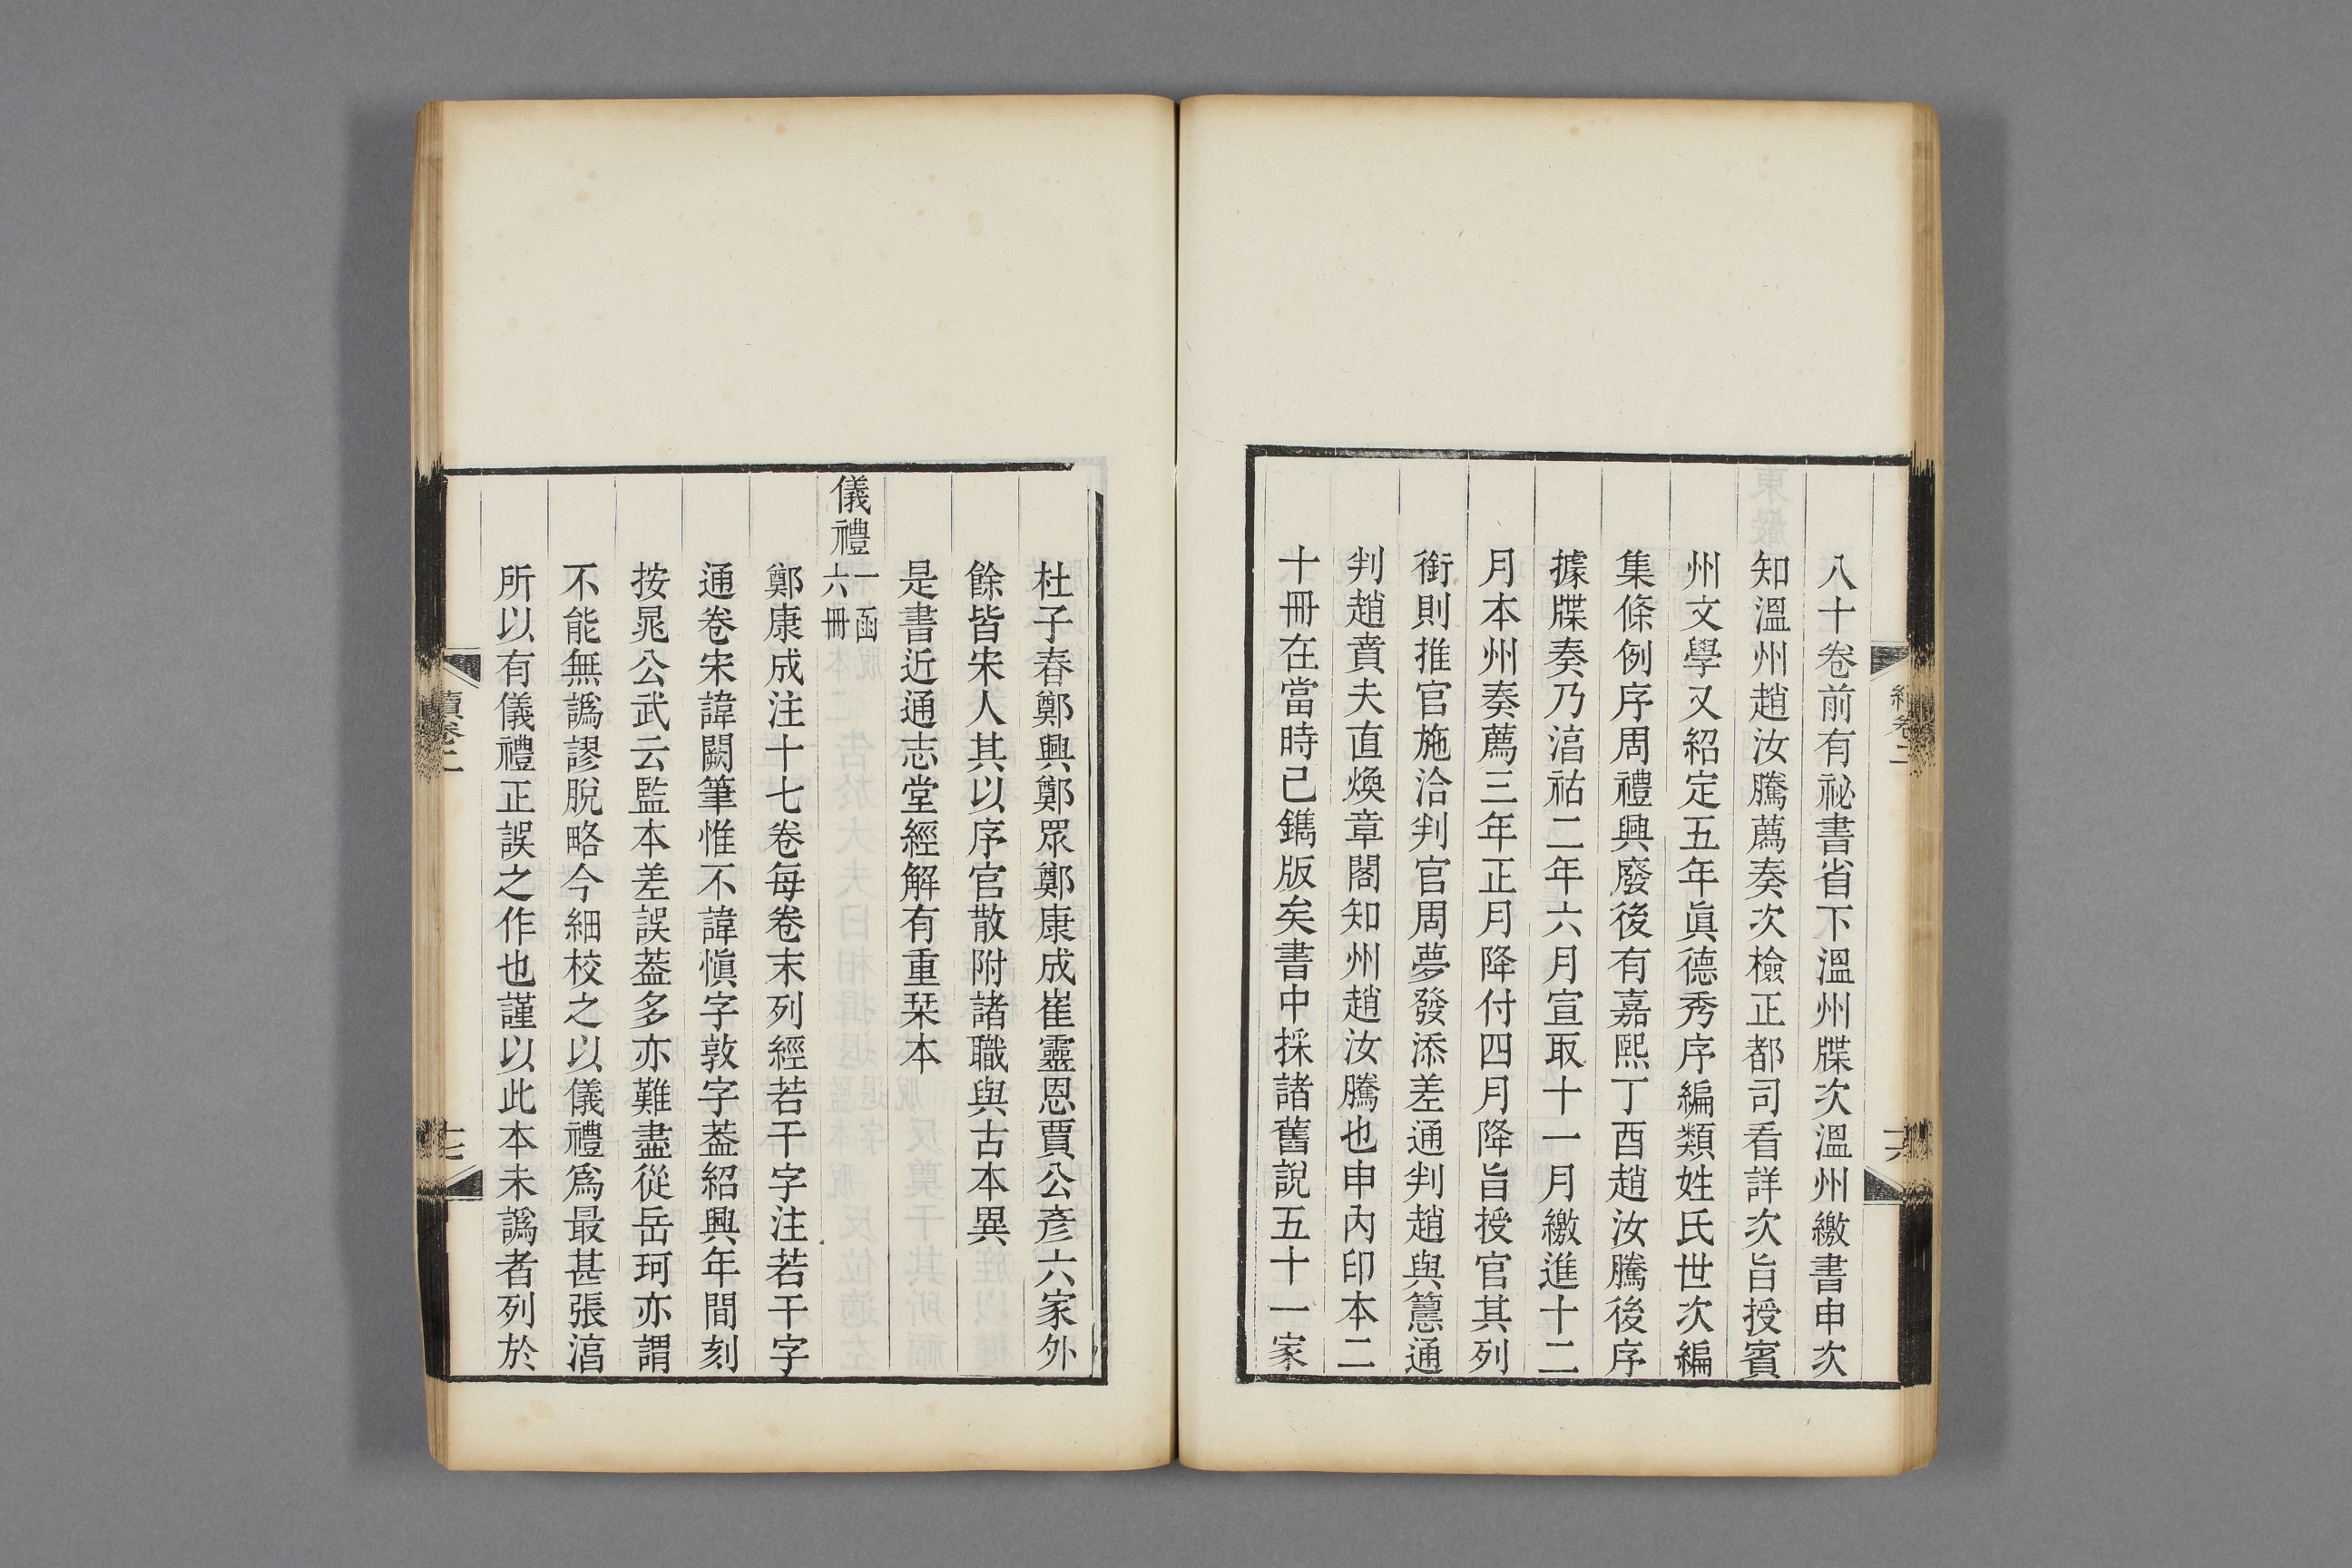 八十卷前有祕書省下溫州牒次溫州繳書申次
知溫州趙汝騰薦奏次檢正都司看詳次旨授賓
州文學又紹定五年眞德秀序編類姓氏世次編
集條例序周禮興廢後有嘉熙丁酉趙汝騰後序
據牒奏乃湻祐二年六月宣取十一月繳進十二
月本州奏薦三年正月降付四月降旨授官其列
銜則推官施洽判官周夢發添差通判趙與𥲅通
判趙賁夫直煥章閣知州趙汝騰也申內印本二
十冊在當時已鐫版矣書中採諸舊說五十一家
杜子春鄭興鄭眾鄭康成崔靈恩賈公彥六家外
餘皆宋人其以序官散附諸職與古本異
是書近通志堂經解有重栞本
儀禮 一函六冊
鄭康成注十七卷每卷末列經若干字注若干字
通卷宋諱闕筆惟不諱愼字敦字葢紹興年間刻
按晁公武云監本差誤葢多亦難盡從岳珂亦謂
不能無譌謬脫略今細校之以儀禮爲最甚張湻
所以有儀禮正誤之作也謹以此本未譌者列於